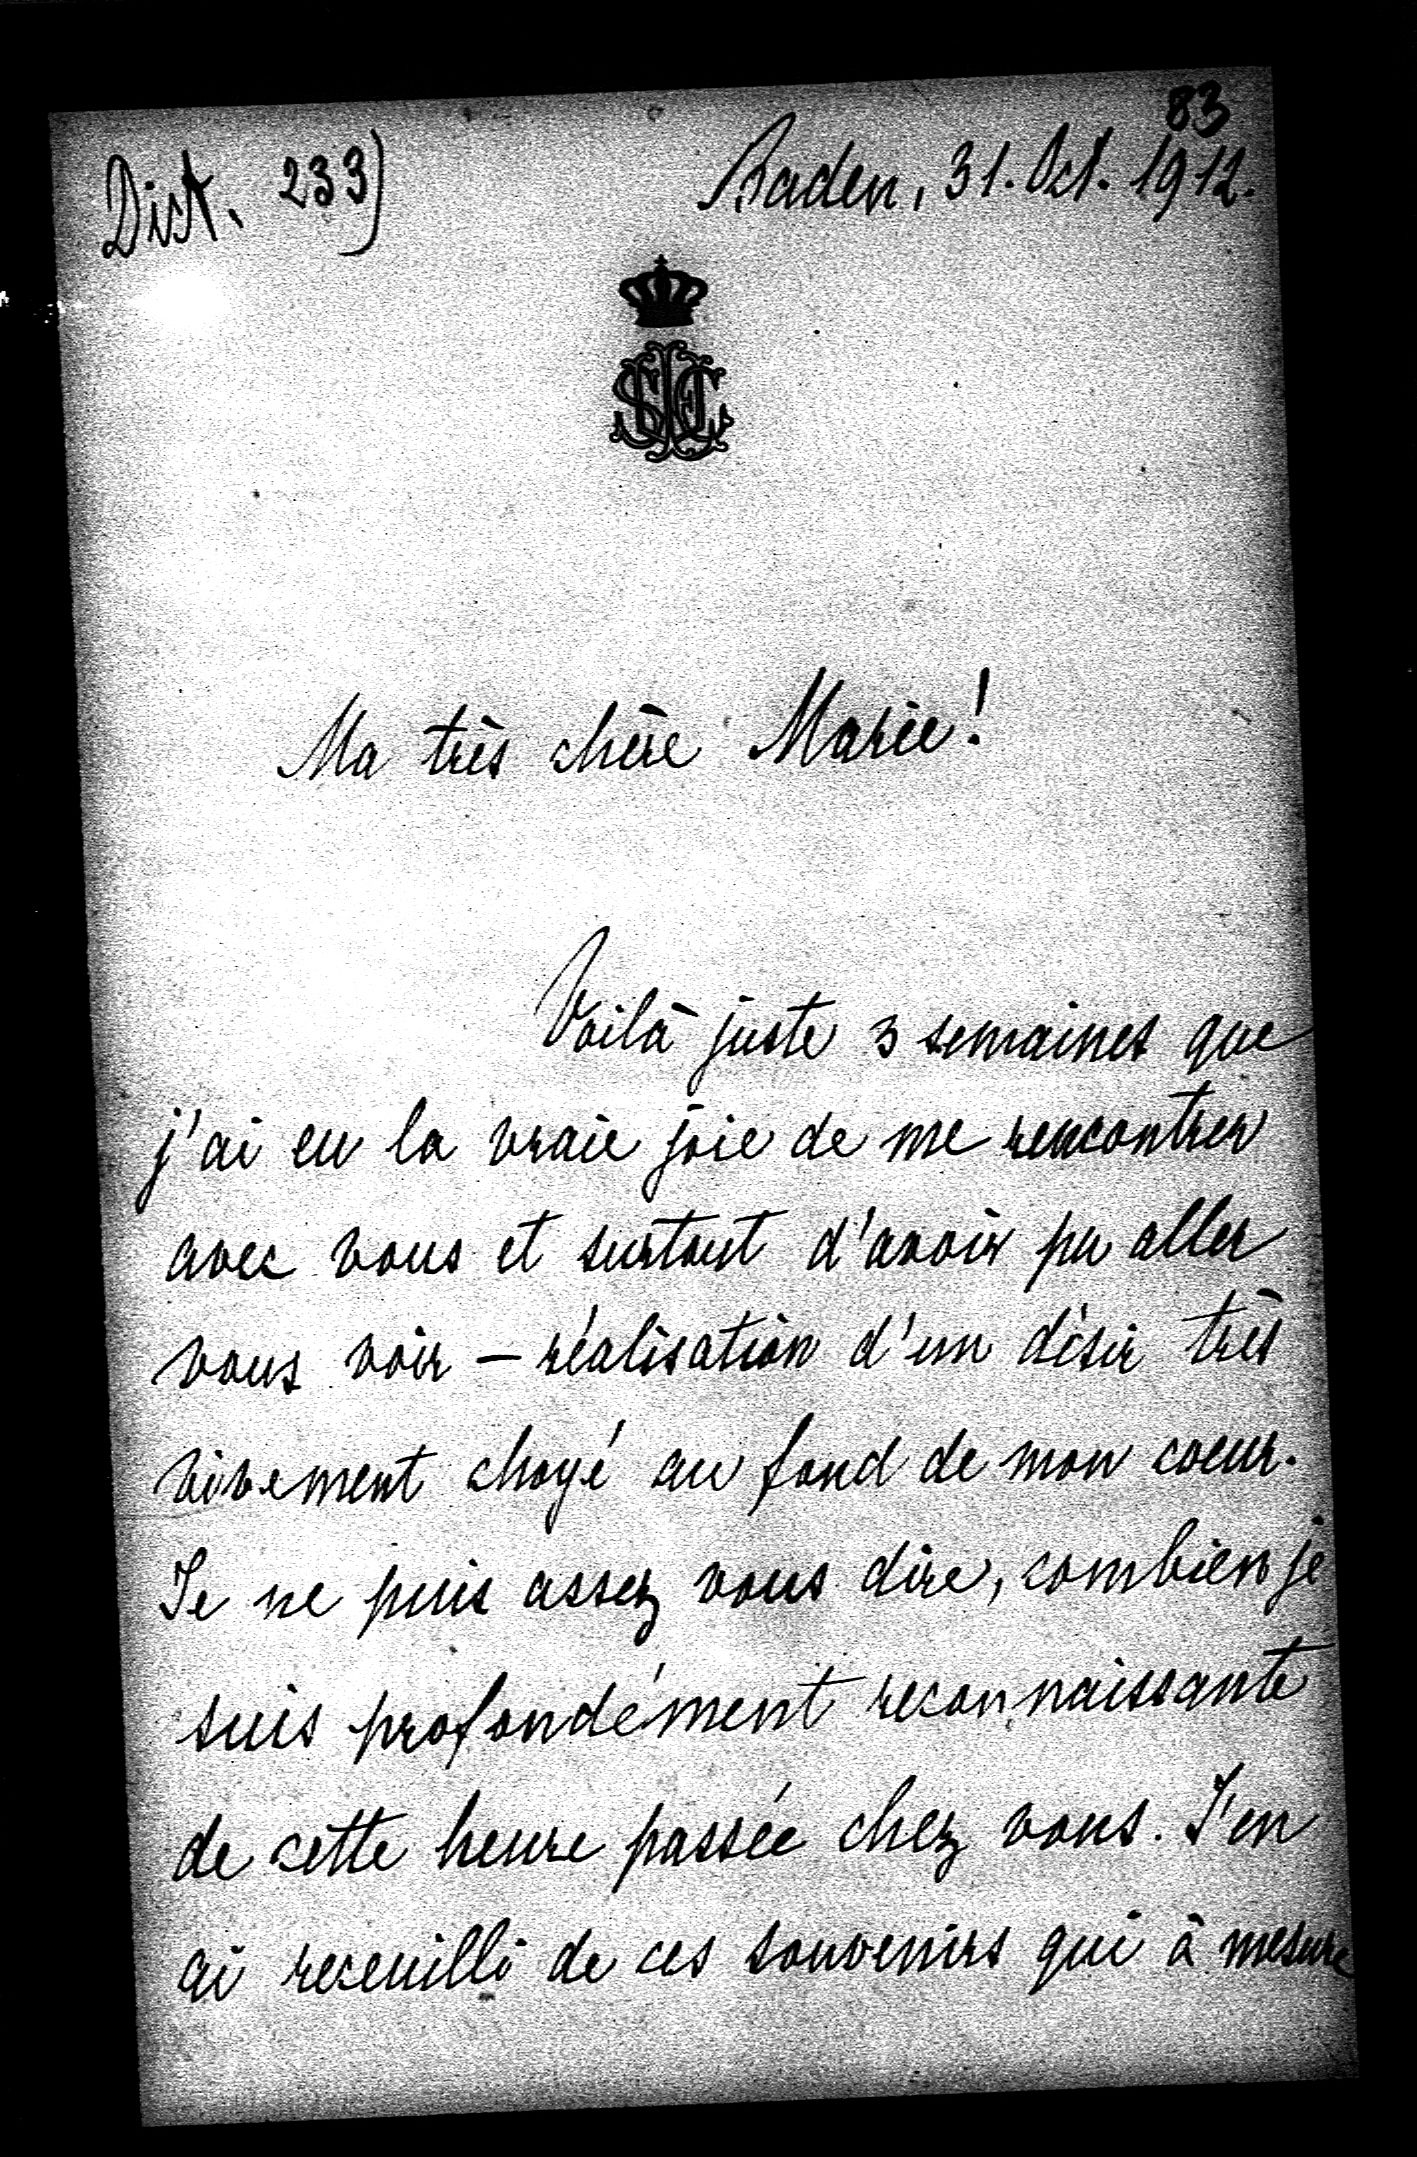 83
Dict. 233) Baden, 31. Oct. 1912.
Ma très chère Marie!
Voilà juste 3 semaines que
j'ai eu la vraie joie de me rencontrer
avec vous et surtout d'avoir pu aller
vous voir – réalisation d'un désir très
vivement choyé au fond de mon coeur.
Je ne puis assez vous dire, combien je
suis profondément reconnaissante
de cette heure passée chez vous. J'en
ai receuilli de ces souvenirs qui à mesure